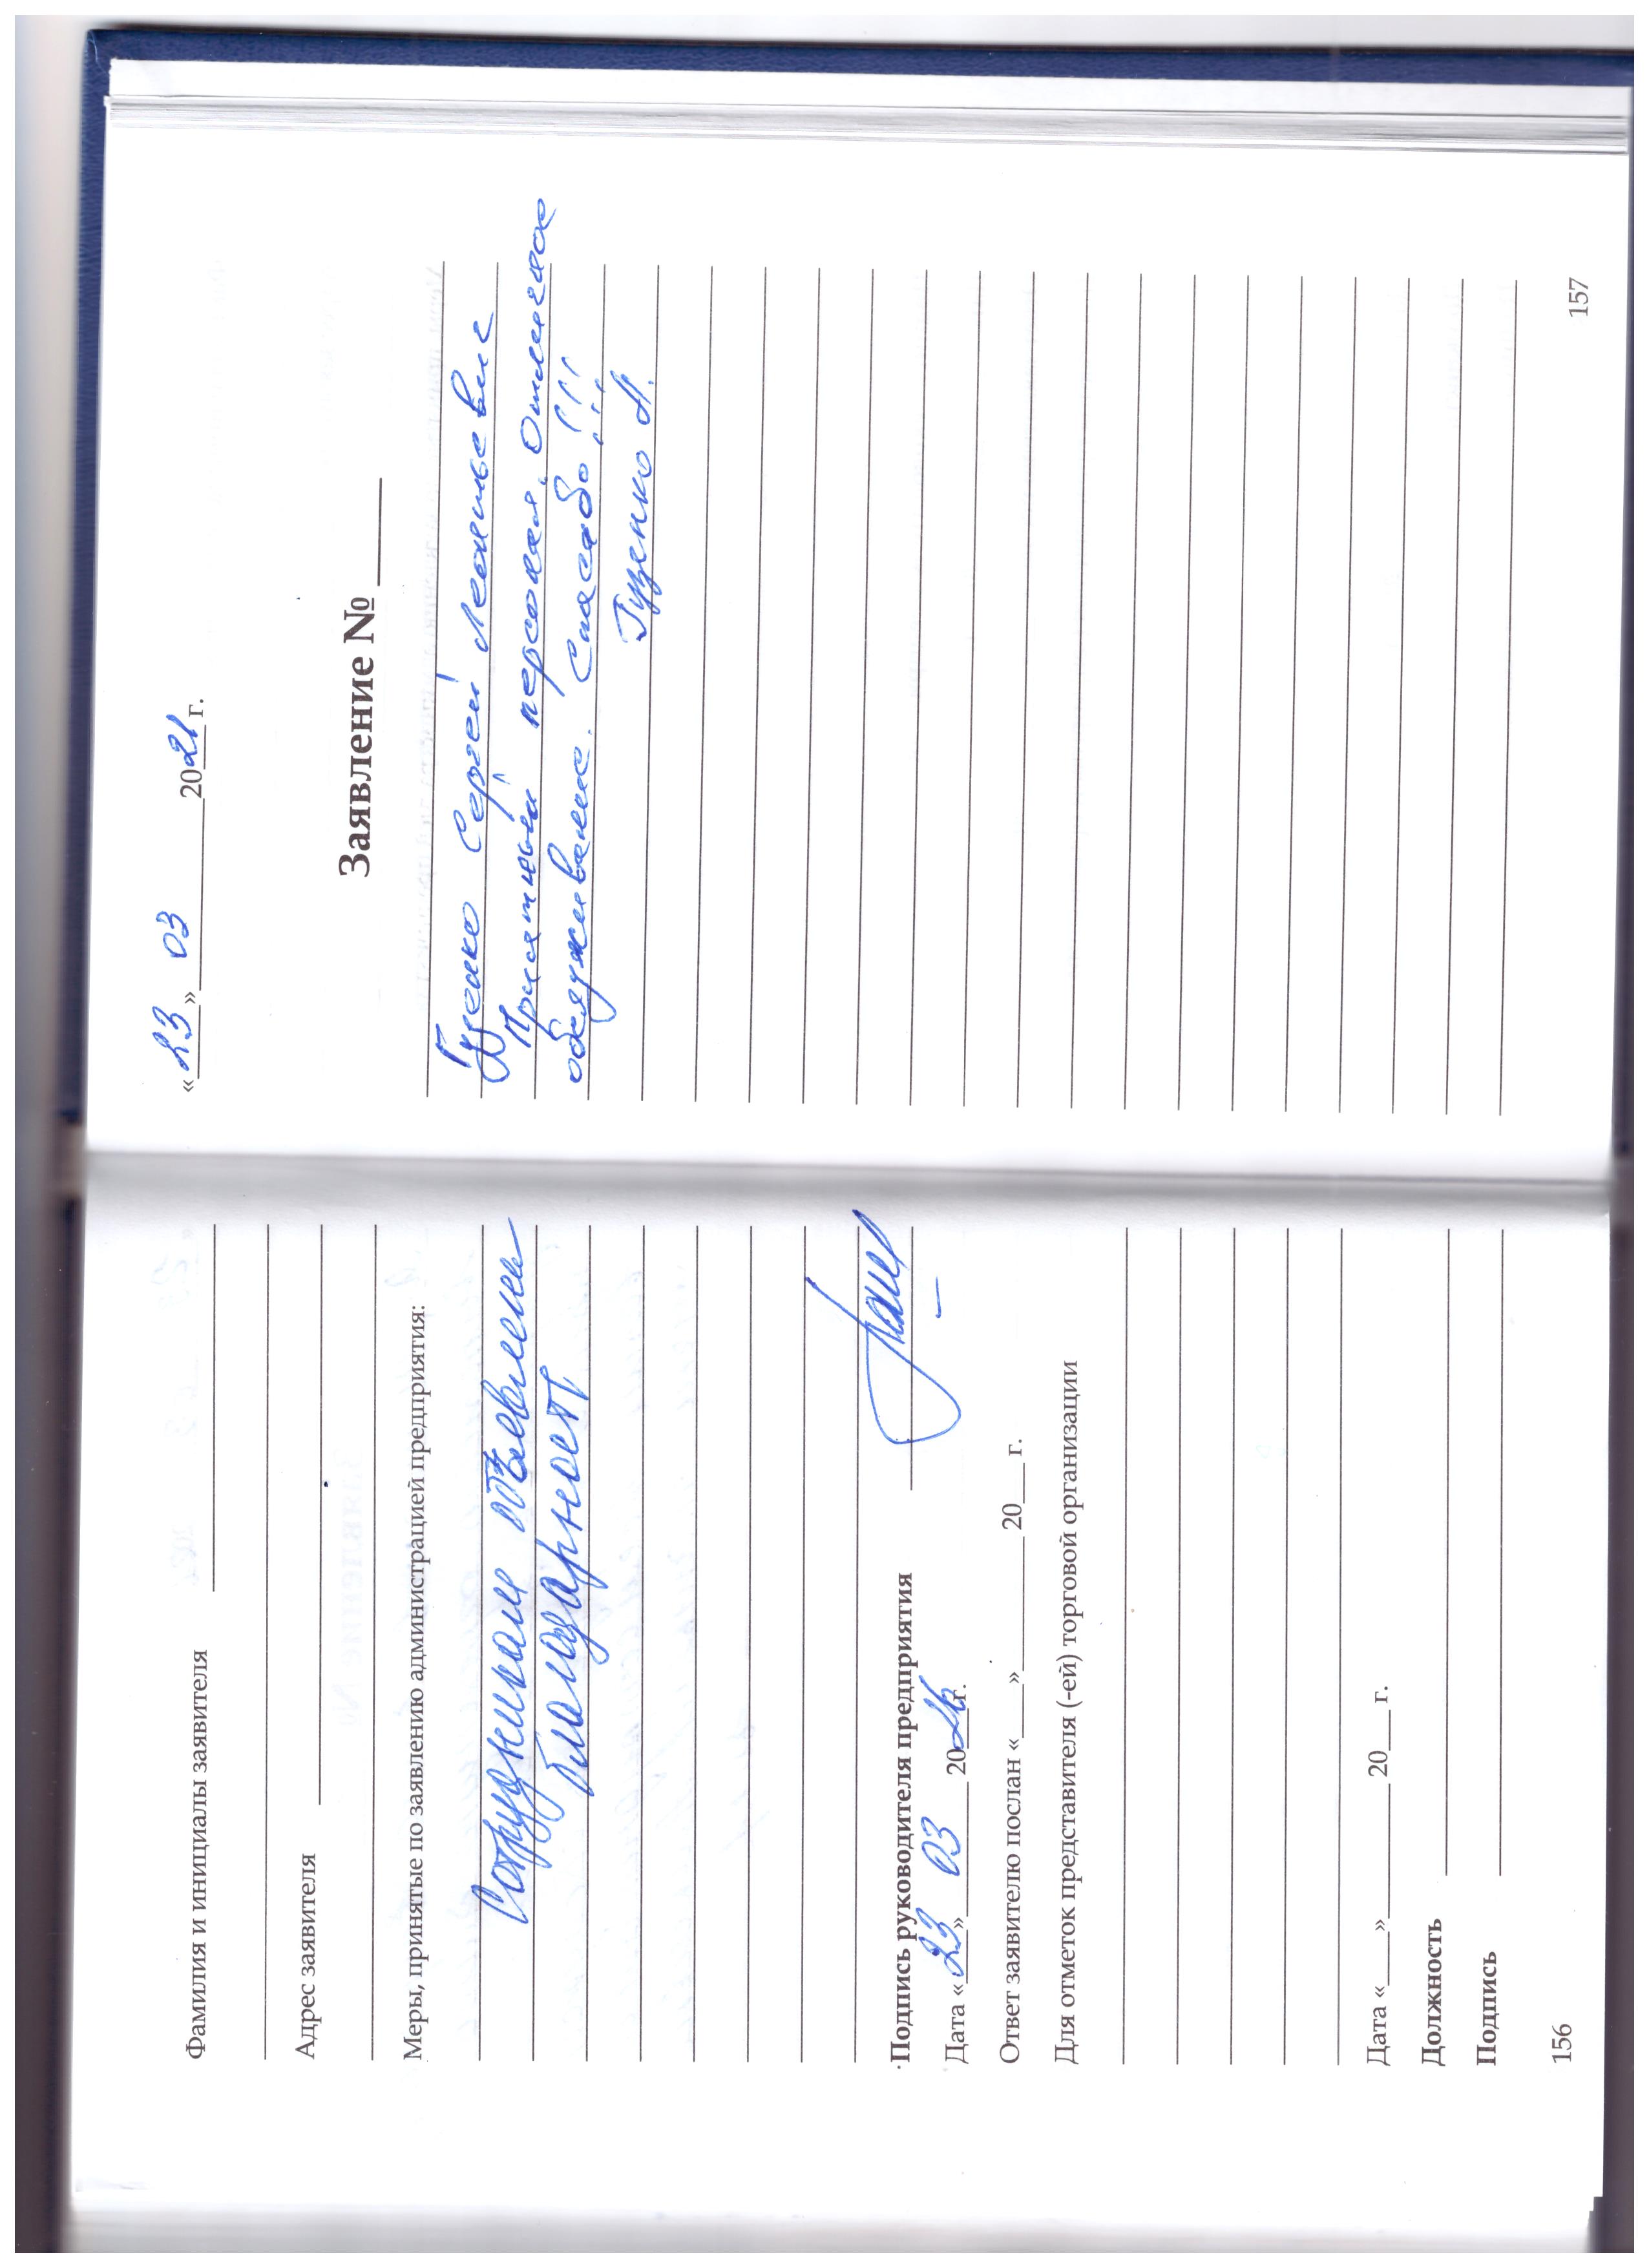 Фамилия и инициалы заявителя
Адрес заявителя
Меры, принятые по заявлению администрацией предприятия:
Сотрудникам объявлены
благодарност
Подпись руководителя предприятия
Дата «23» 03 20 г.
Ответ заявителю послан «___» ___ 20__ г.
Для отметок представителя (-ей) торговой организации
Дата «___» ___ 20__ г.
Должность
Подпись
156
«23» 03 2021 г.
Заявление №
Гуценко Сергей Леонтьевич
Приятный персонал. Отличное
обслуживание. Спасибо!!!
Гуценко
157